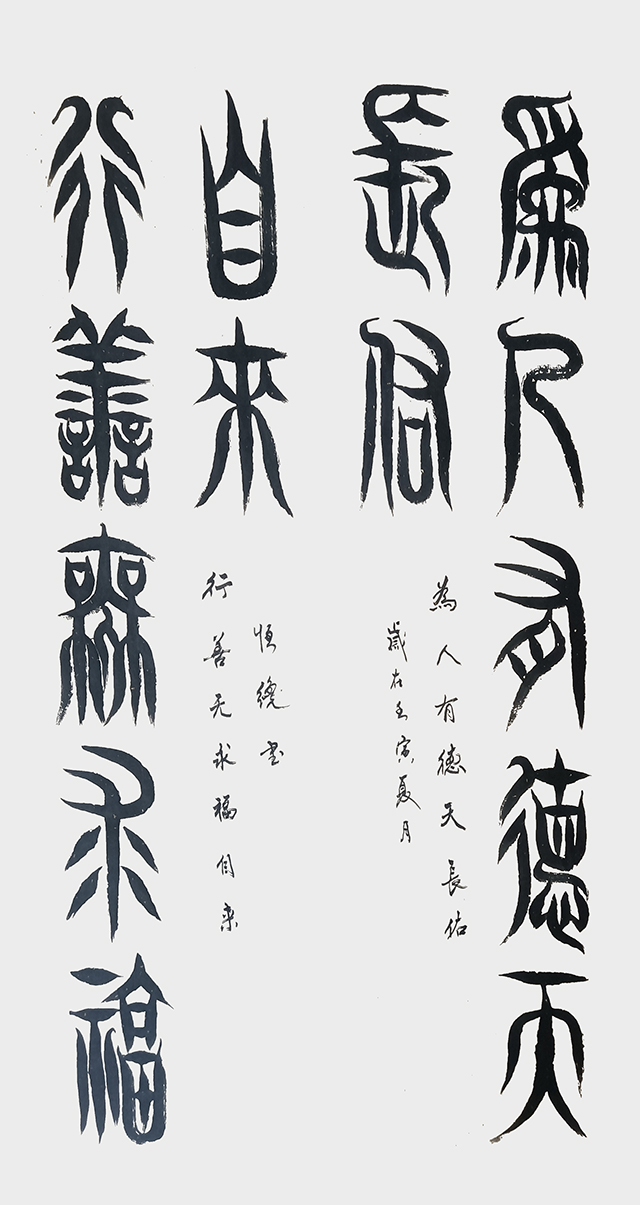 爲人有德天
長佑
為人有德天長佑
歲在壬寅夏月
行善無求福
自來
行善无求福自来
恒书